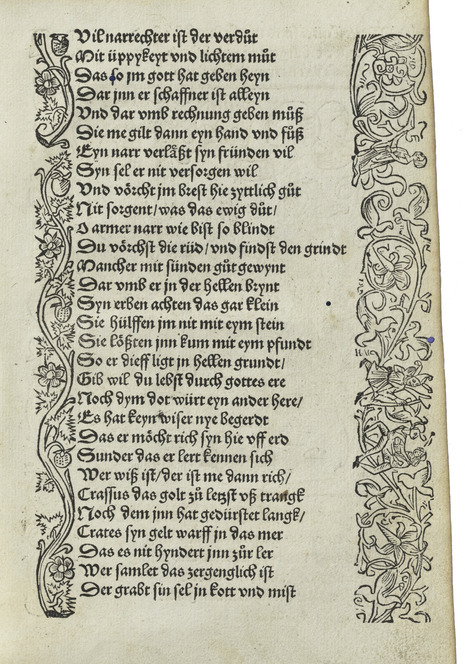 Vil narrechter ist der verdůt
Mit üppykeyt vnd lichtem můt
Das so jm gott hat geben heyn
Dar jnn er schaffner ist alleyn
Vnd dar vmb rechnung geben můß
Die me gilt dann eyn hand vnd fůß
Eyn narr verläßt syn fründen vil
Syn sel er nit versorgen wil
Vnd vörcht jm brest hie zyttlich gůt
Nit sorgent/was das ewig důt/
O armer narr wie bist so blindt
Du vörchst die rüd/vnd findst den grindt
Mancher mit sünden gůt gewynt
Dar vmb er jn der hellen brynt
Syn erben achten das gar klein
Sie hülffen jm nit mit eym stein
Sie lößten jnn kum mit eym pfundt
So er dieff ligt jn hellen grundt/
Gib wil du lebst durch gottes ere
Noch dym dot würt eyn ander here/
Es hat keyn wiser nye begerdt
Das er möcht rich syn hie vff erd
Sunder das er lert kennen sich
Wer wiß ist/der ist me dann rich/
Crassus das golt zů letzst vß trangk
Noch dem jnn hat gedürstet langk/
Crates syn gelt warff jn das mer
Das es nit hyndert jnn zůr ler
Wer samlet das zergenglich ist
Der grabt sin sel jn kott vnd mist